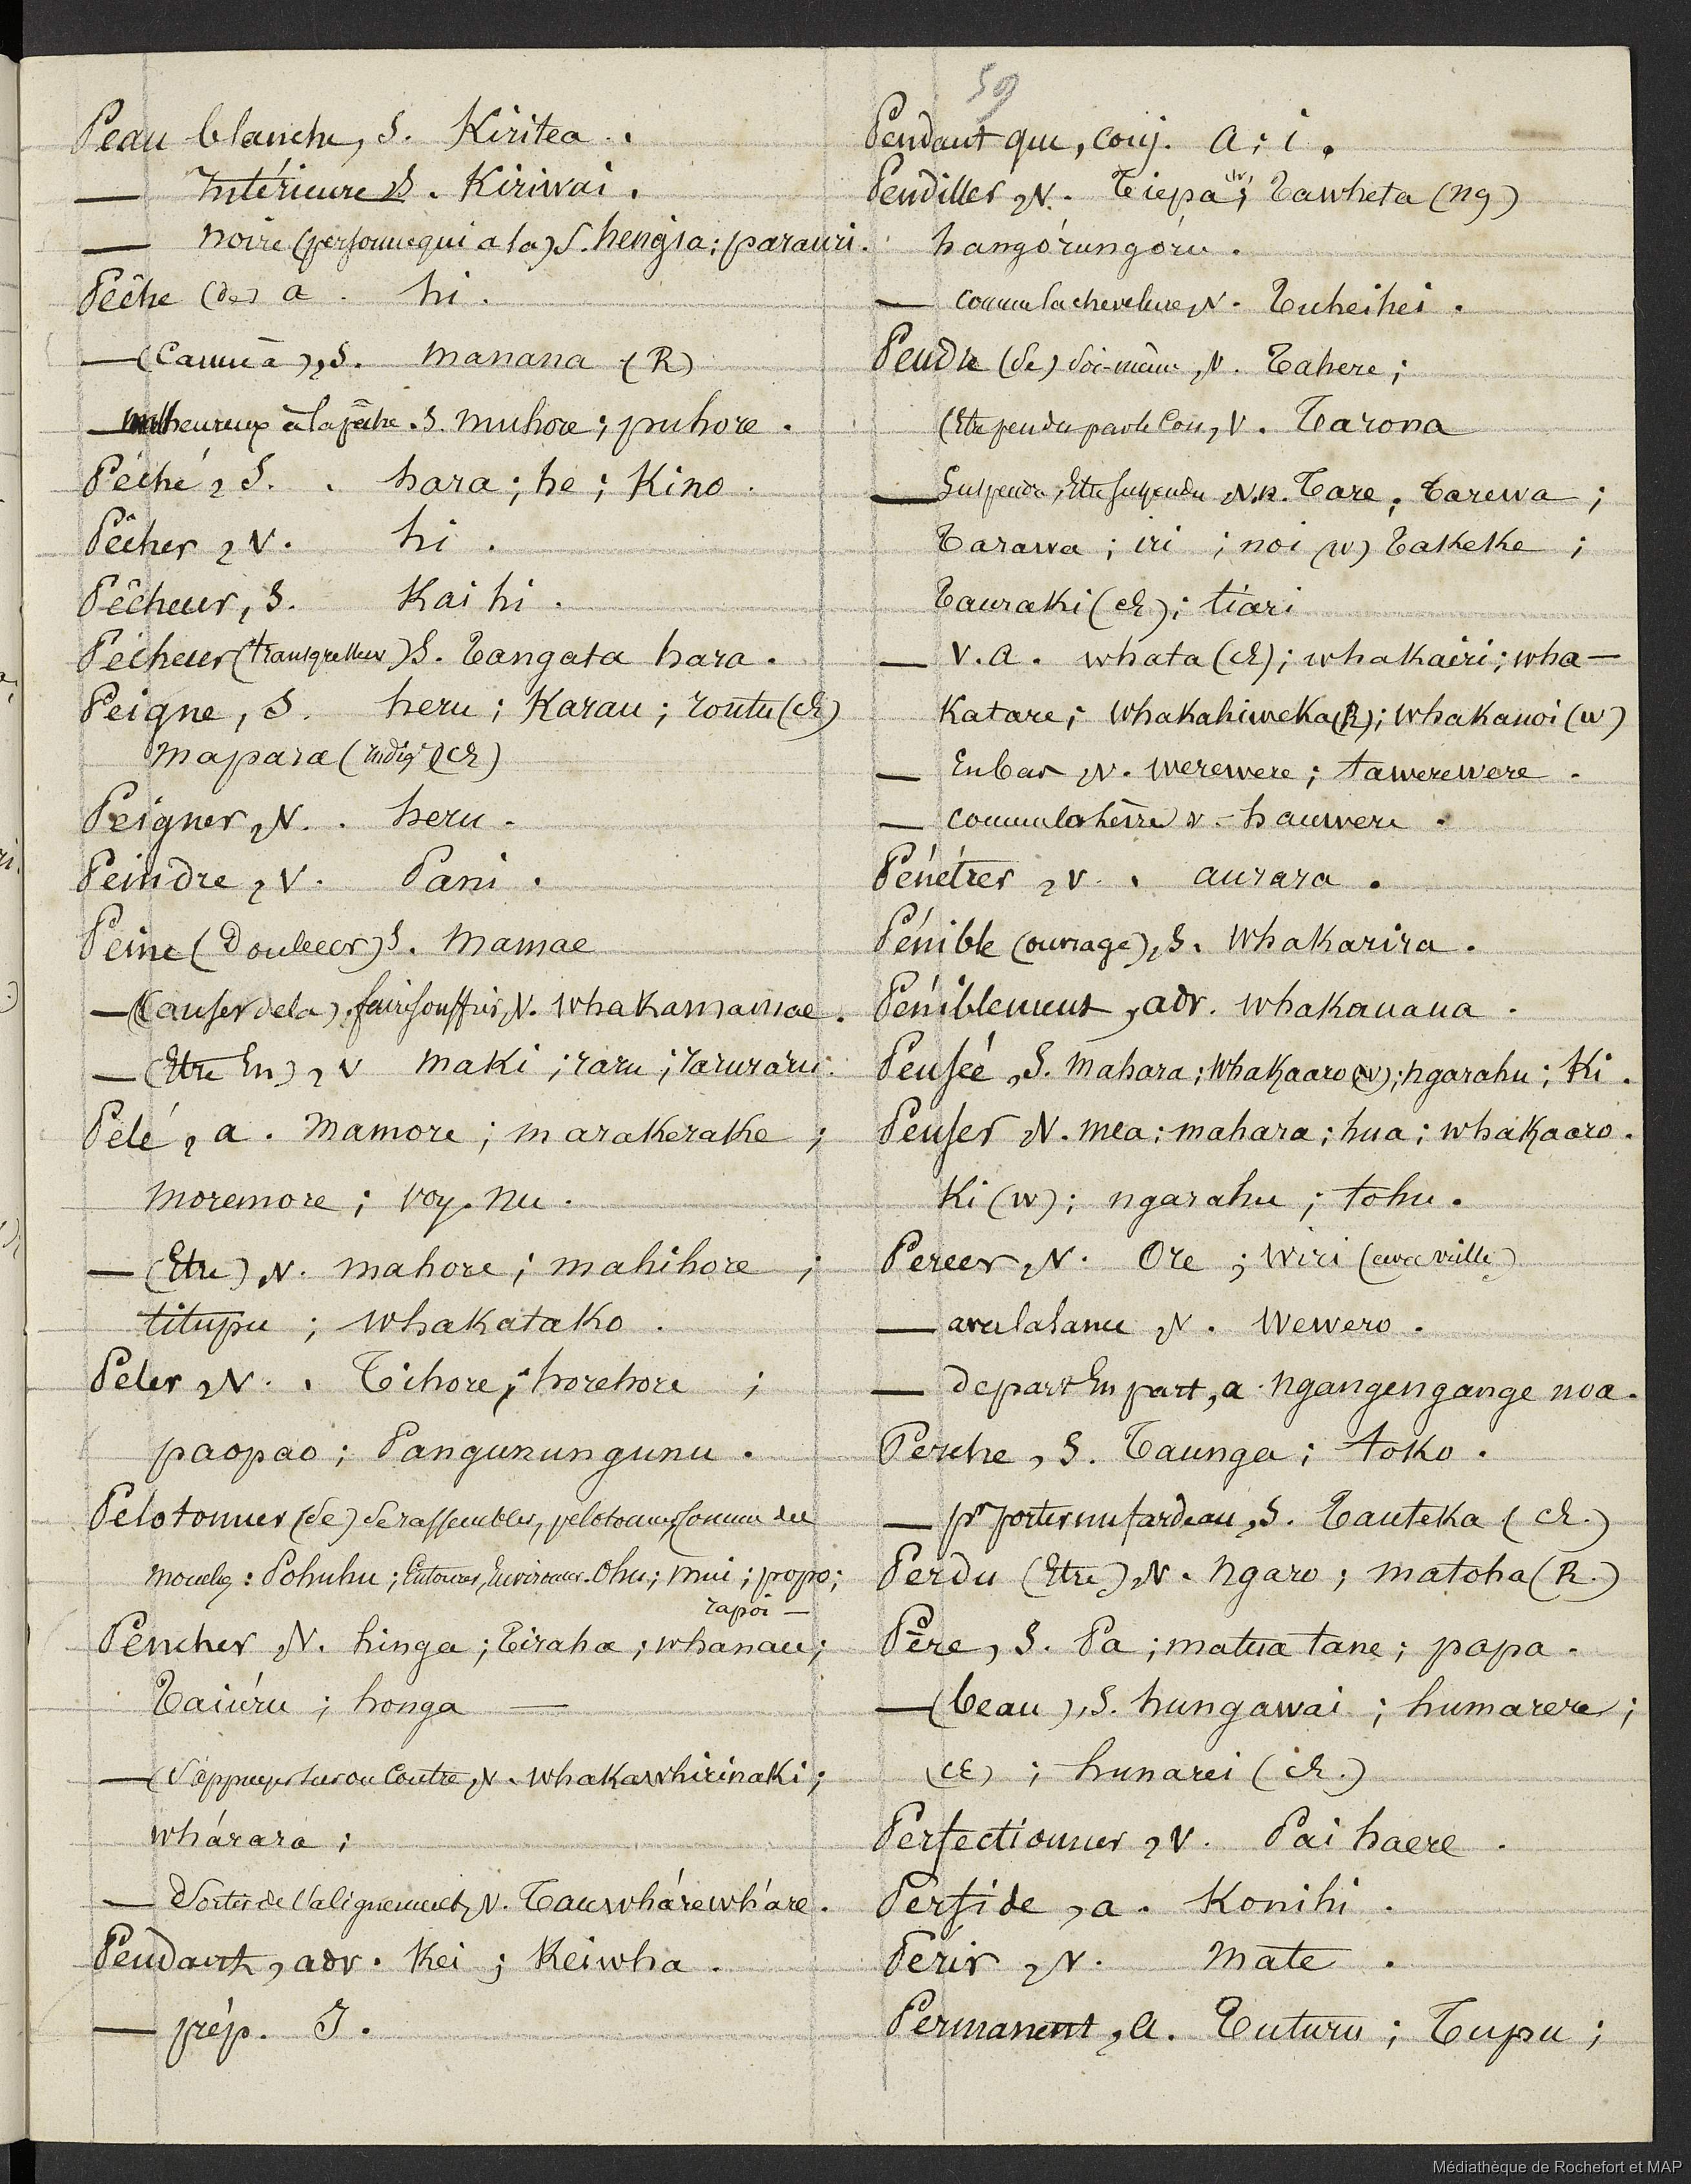 59
Peau blanche, S. Kiritea.
— Intérieure S. Kiriwai.
— noire (personne qui a la) S. hengia; parauri.
Pêche (de) a. hi.
— (Canne à), S. manana (R)
— malheureux à la pêche. S. muhore; puhore.
Péché, S. hara; he; Kino.
Pêcher, V. hi.
Pêcheur, S. Kai hi.
Pécheur (transgresseur) S. Tangata hara.
Peigne, S. heru; Karau; (ch)
mapara (indig) (ch)
Peigner, V. heru.
Peindre, V. Pani.
Peine (Douleur) S. Mamae
— (Causer de la), faire souffrir, V. whakamamae.
— (Etre En), V maki; raru; raruraru.
Pelé, a. Mamore; marakerake;
moremore; voy. nu.
— (Etre) V. mahore; mahihore;
titupu; whakatako.
Peler, V. Tihore; horehore;
paopao; Pangunungunu.
Pelotonner (Se) Se rassembler, pelotonner, comme des
mouches: Pohuhu; Entourer, Environner. Ohu; mui; popo;
rapoi —
Pencher, V. hinga; Tiraha; whanau;
Taiúru; honga —
— (S'appuyer sur ou Contre, V. whakawhirinaki;
whárara;
— Sortir de l'alignement, V. Tauwhárewháre.
Pendant, adv. Kei; Keiwha.
— prép. I.
Pendant que, conj. a; i.
Pendiller, V. Tiepa; Tawheta (ng)
hangórungóru.
— comme la chevelure, V. Tuheihei.
Pendre (Se) Soi-même, V. Tahere;
(Etre pendu par le Cou, V. Tarona
— Suspendre, Etre suspendu V.n. Tare; Tarewa;
Tarawa; iri; noi (w) Takeke;
Tauraki (ch); tiari
— V.a. whata (ch); whakairi; wha—
Katare; whakahiweka (R); whakanoi (w)
— En bas, V. werewere; tawerewere.
— comme la V. hauwere.
Pénétrer, V. aurara.
Pénible (ouvrage), S. Whakarira.
Péniblement, adv. whakauaua.
Pensée, S. Mahara; Whakaaro (w); ngarahu; Ki.
Penser V. mea; mahara; hua; whakaaro.
Ki (w); ngarahu; tohu.
Percer, V. Ore; Wiri (avec vrille)
— avec la lance, V. Wewero.
— de part En part, a. ngangengange noa.
Perche, S. Taunga; toko.
— pr porter un fardeau, S. Tauteka (ch.)
Perdu (Etre), V. Ngaro; matoha (R.)
Père, S. Pa; matua tane; papa.
— (beau), S. hungawai; humarere;
(ch); hunarei (ch.)
Perfectionner, V. Pai haere.
Perfide, a. Konihi.
Périr, V. Mate.
Permanent, a. Tuturu; Tupu;
Médiathèque de Rochefort et MAP